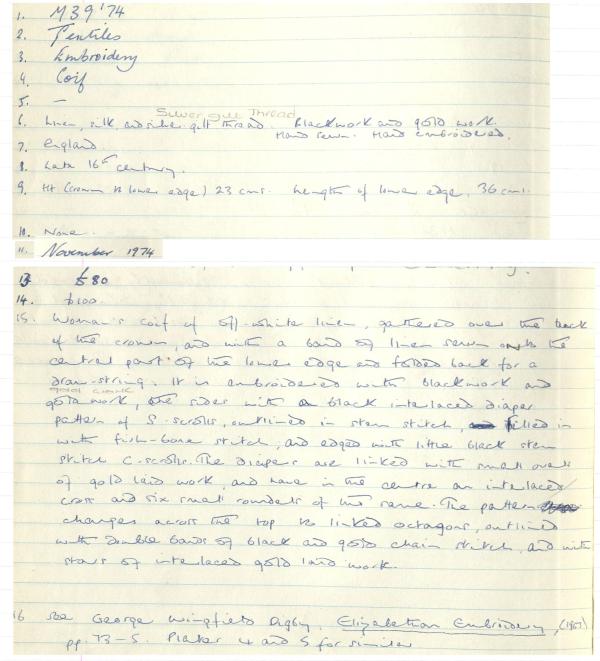 1. M39'74
2. Textiles
3. Embroidery
4. Coif
5. —
Silver gilt Thread
6. Linen, silk, and silver-gilt thread. Blackwork and gold work.
Hand sewn. Hand embroidered.
7. England.
8. Late 16th century.
9. Ht (crown to lower edge) 23 cms. Length of lower edge, 36 cms.
10. None.
11. November 1974
13 £80
14. £100.
15. Woman's coif of off-white linen, gathered over the back
of the crown, and with a band of linen sewn onto the
central part of the lower edge and folded back for a
draw-string. It is embroidered with blackwork and
gold work
gold work, the sides with a black interlaced diaper
pattern of S-scrolls, outlined in stem stitch, filled in
with fish-bone stitch, and edged with little black stem
stitch C-scrolls. The diapers are linked with small ovals
of gold laid work, and have in the centre an interlaced
cross and six small roundels of the same. The pattern
changes across the top to linked octagons, outlined
with double bands of black and gold chain stitch, and with
stars of interlaced gold laid work.
16 See George Wingfield Digby, Elizabethan Embroidery,
pp. 73-5. Plates 4 and 5 for similar